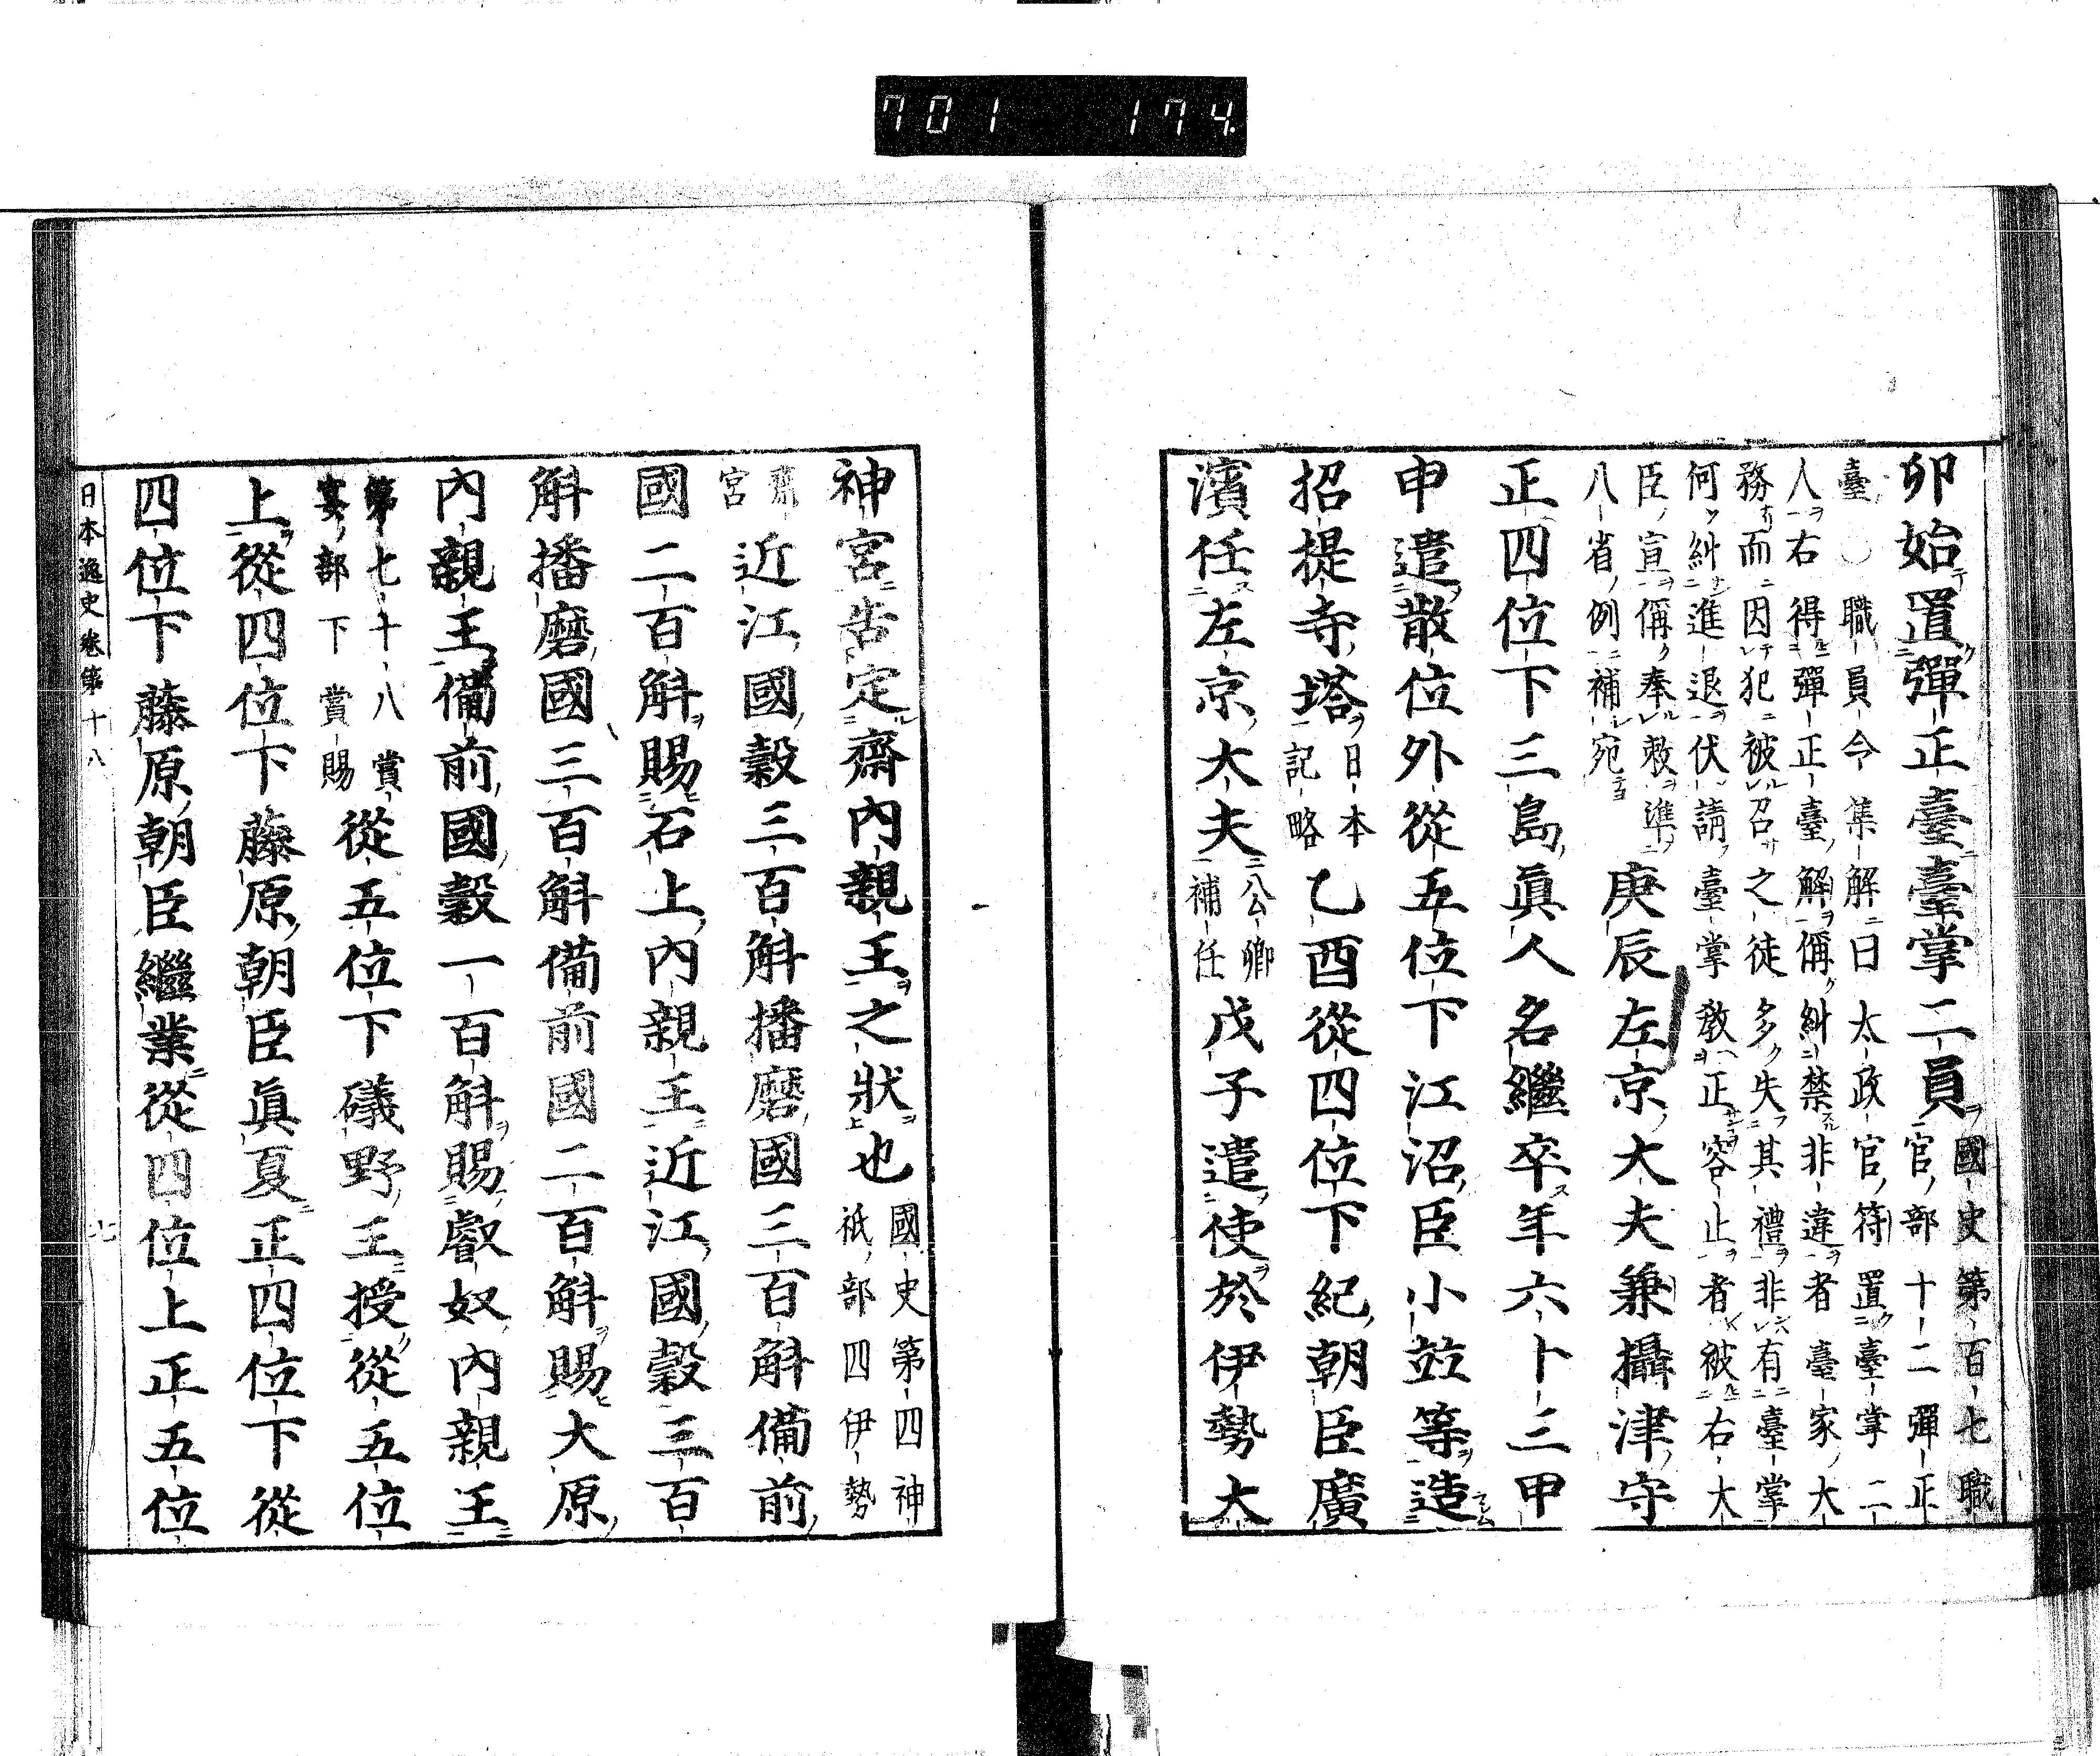 701 174
卯始置彈正臺臺掌二員國史第百七職
官部十二彈正
臺〇職員令集解曰太政官符置臺掌二
人右得彈正臺解偁糾禁非違者臺家大
務而因犯被召之徒多失其禮非有臺掌
何糾進退伏請臺掌教正容止者被右大
臣宣偁奉敕準
八省例補宛庚辰左京大夫兼攝津守
正四位下三島眞人名繼卒年六十三甲
申遣散位外從五位下江沼臣小並等造
招提寺塔日本
記略乙酉從四位下紀朝臣廣
濱任左京大夫公卿
補任戊子遣使於伊勢大
神宮告定齋內親王之狀也國史第四神
祇部四伊勢
齋
宮近江國穀三百斛播磨國三百斛備前
國二百斛賜石上內親王近江國穀三百
斛播磨國三百斛備前國二百斛賜大原
內親王備前國穀一百斛賜叡奴內親王
第七十八賞
宴部下賞賜從五位下礒野王授從五位
上從四位下藤原朝臣眞夏正四位下從
四位下藤原朝臣繼業從四位上正五位
日本逸史卷第十八
七